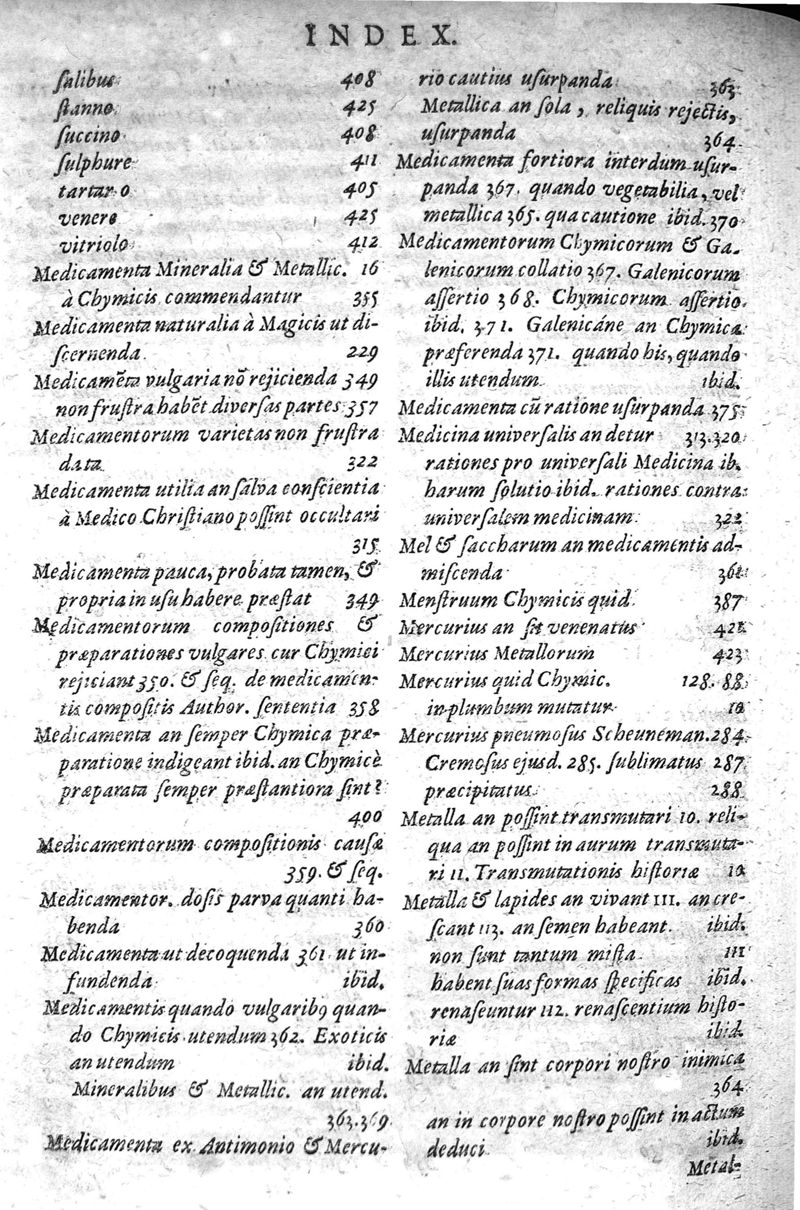 INDEX.
ſalibus 408
ſtanno 425
ſuccino 408
ſulphure 411
tartaro 405
venere 425
vitriolo 412
Medicamenta Mineralia & Metallic. 16
à Chymicis commendantur 355
Medicamenta naturalia à Magicis ut di-
ſcernenda 229
Medicamēta vulgaria nō rejicienda 349
non fruſtra habēt diverſas partes 357
Medicamentorum varietas non fruſtra
data 322
Medicamenta utilia an ſalva conſcientia
à Medico Chriſtiano poſſint occultari
315
Medicamenta pauca, probata tamen, &
propria in uſu habere præſtat 349
Medicamentorum compoſitiones &
præparationes vulgares cur Chymici
rejiciant 350. & ſeq. de medicamen-
tis compoſitis Author. ſententia 358
Medicamenta an ſemper Chymica præ-
paratione indigeant ibid. an Chymicè
præparata ſemper præſtantiora ſint?
400
Medicamentorum compoſitionis cauſæ
359. & ſeq.
Medicamentor. doſis parva quanti ha-
benda 360
Medicamenta ut decoquenda 361 ut in-
fundenda ibid.
Medicamentis quando vulgarib9 quan-
do Chymicis utendum 362. Exoticis
an utendum ibid.
Mineralibus & Metallic. an utend.
363.369
Medicamenta ex Antimonio & Mercu-
rio cautius uſurpanda 363
Metallica an ſola, reliquis rejectis,
uſurpanda 364
Medicamenta fortiora interdum uſur-
panda 367. quando vegetabilia, vel
metallica 365. qua cautione ibid. 370
Medicamentorum Chymicorum & Ga-
lenicorum collatio 367. Galenicorum
aſſertio 368. Chymicorum aſſertio
ibid. 371. Galenicáne an Chymica
præferenda 371. quando his, quando
illis utendum ibid.
Medicamenta cū ratione uſurpanda 375
Medicina univerſalis an detur 313.320
rationes pro univerſali Medicina ib.
harum ſolutio ibid. rationes contra
univerſalem medicinam 322
Mel & ſaccharum an medicamentis ad-
miſcenda
Menſtruum Chymicis quid 387
Mercurius an ſit venenatus
Mercurius Metallorum 423
Mercurius quid Chymic. 128. 88
in plumbum mutatur 10
Mercurius pneumoſus Scheuneman. 284
Cremoſus ejusd. 285. ſublimatus 287
præcipitatus 288
Metalla an poſſint transmutari 10. reli-
qua an poſſint in aurum transmuta-
ri 11. Transmutationis hiſtoriæ 10
Metalla & lapides an vivant 111. an cre-
ſcant 113. an ſemen habeant ibid.
non ſunt tantum miſta 111
habent ſuas formas ſpecificas ibid.
renaſcuntur 112. renaſcentium hiſto-
riæ ibid.
Metalla an ſint corpori noſtro inimica
364
an in corpore noſtro poſſint in actum
deduci ibid.
Metal-